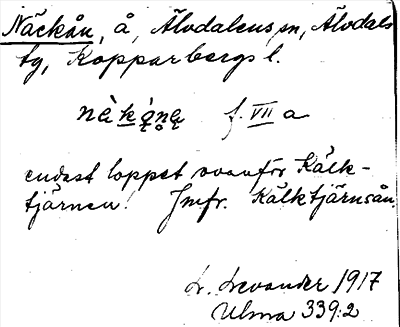 Näckån, å, Älvdalens sn, Älvdals
tg, Kopparbergs l.
f. VII a
endast loppet ovanför Kälk-
tjärnen! Jmfr. Kälktjärnsån.
L. Levander 1917
Ulma 339:2